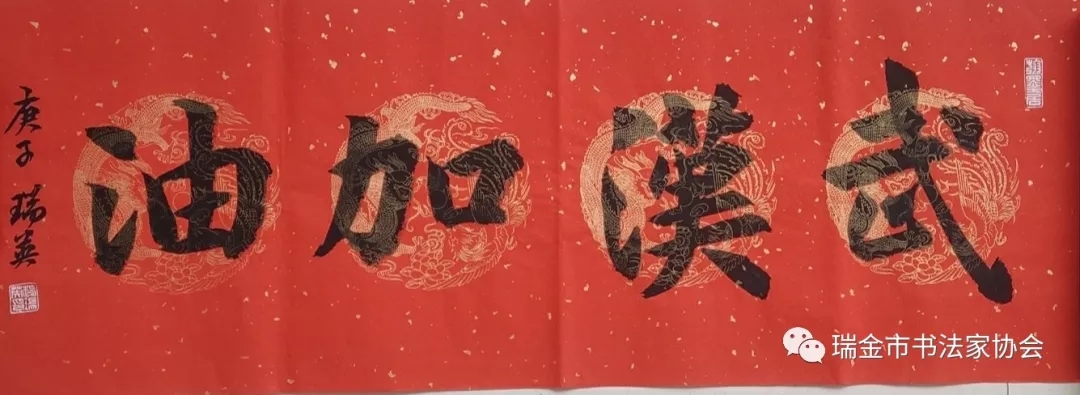 武漢加油
庚子 瑞英
瑞金市书法家协会